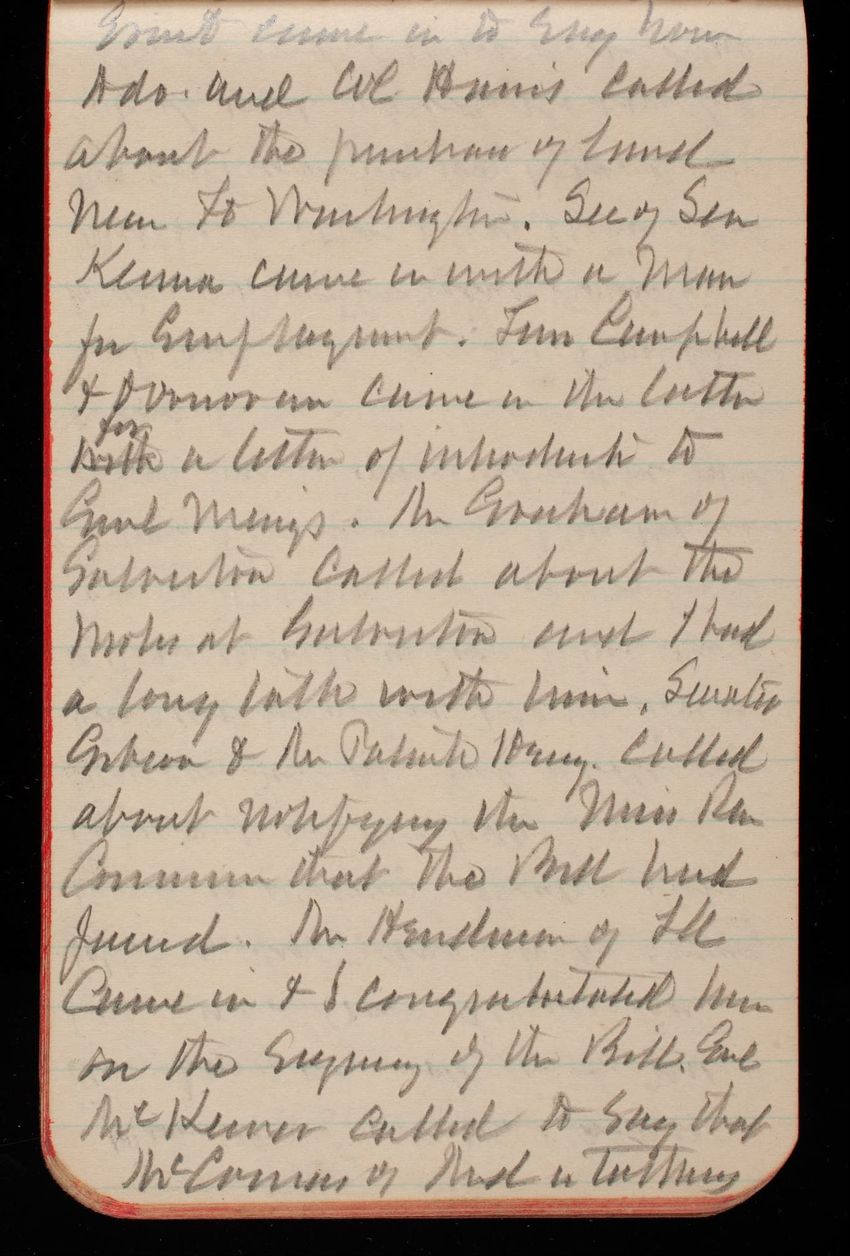 came in to say how
and Col Harris called
about the purchase of land
near Ft Washington. Secy of Sen
Kenna came in with a man
for Employment. Tim Campbell
& Donovan came in the latter
for with a letter of introducti to
Genl Meigs. Mr of
Galveston called about the
Moles at Galveston and I had
a long talk with him. Senator
Gibson & Mr Patrick Henry called
about notifying the Miss Riv
Commn that the Bill had
passed. Mr Henderson of Ill
Came in & I congratulated him
on the Signing of the Bill. Genl
McKeever called to say that
McComas of Md